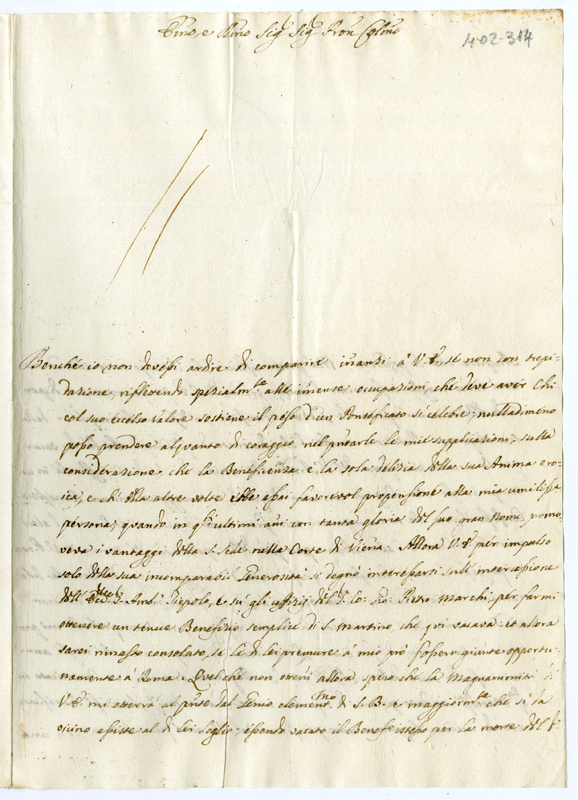 Emo, e Rmo Sigr Sigr Pron Colmo
402-314
Benché io non dovessi ardire di comparire inanzi à V. E. se non con trepi-
dazione riflettendo spezialmte alle imense occupazioni, che deve aver Chi
col suo eccelso valore sostiene il peso d'un Pontificato sì celebre; nulladimeno
posso prendere alquanto di coraggio nel portarle le mie supplicazioni, sulla
considerazione, che la Beneficenza è la sola delizia della sua Anima ero-
ica, e ch'Ella altre volte ebbe assai favorevol propensione alla mia umilissa
persona, quando in qsti ultimi ani con tanta gloria del suo gran Nome promo
veva i vantaggi della S. Sede nella Corte di Viena. Allora V. E. per impulso
solo della sua incomparabil Generosità si degnò interessarsi sull'intercessione
dell' Amb. Tiepolo, e su gli uffizij del Pietro Marchi, per farmi
ottenere un tenue Benefizio semplice di S. Martino, che qui vacava: et allora
sarei rimasto consolato, se le di lei premure à mio prò fossero giunte opportu-
namente à Roma. Quel che non otteni allora, spero che la Magnanimità di
V. E. mi otterrà al prnte dal Genio clementmo di S. B. e maggiormte che sì da
vicino assiste al di lei soglio; essendo vacato il Benef. istesso per la morte del